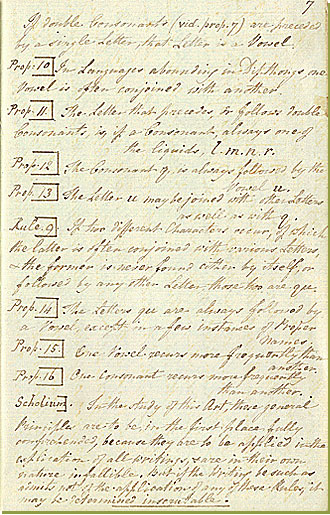 7
If double Consonants (vid. prop. 7) are preceded
by a single Letter, that Letter is a Vowel.
Prop. 10 In Languages abounding in Dipthongs one
Vowel is often conjoined with another.
Prop. 11. The Letter that precedes, or follows double
Consonants, is, if a Consonant, always one of
the liquids, l. m. n. r.
Prop. 12 The Consonant q, is always followed by the
Vowel u.
Prop. 13 The Letter u may be joined with other Letters
as well as with q
Rule. 9 If two different Characters occur, of which
the latter is often conjoined with various Letters,
& the former is never found either by itself, or
followed by any other Letter those two are qu.
Prop. 14 The Letters qu are always followed by
a Vowel, except in a few instances of Proper
Names.
Prop. 15. One Vowel recurs more frequently than
another.
Prop. 16 One Consonant recurs more frequently
than another.
Scholium. In the Study of this Art, these general
Principles are to be, in the first place, fully
comprehended, because they are to be applied in the
explication of all writings, & are in their own
nature infallible. But if the Writing be such as
admits not of the application of any of these Rules, it
may be determined inscrutable.